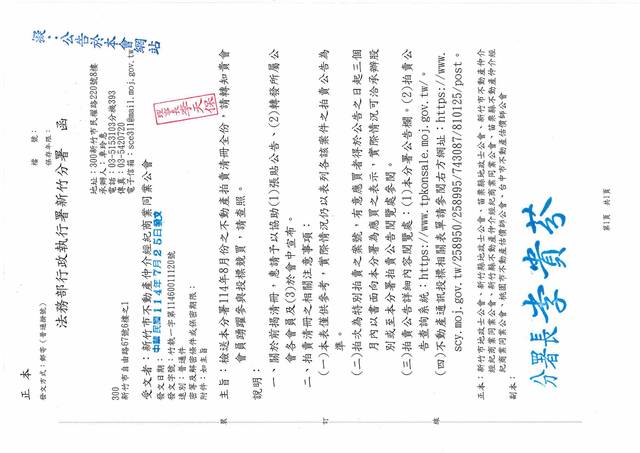 檔　　號：
保存年限：
擬：公告於本會網站
法務部行政執行署新竹分署　函
地址：300新竹市民權路220號8樓
電話：03-5153103分機393
傳真：03-5420720
電子信箱：scc311@mail.moj.gov.tw
正本
發文方式：郵寄（普通掛號）
300
新竹市自由路67號6樓之1
受文者：新竹市不動產仲介經紀商業同業公會
發文日期：中華民國114年7月25日發文
發文字號：竹執一字第11460011120號
速別：普通件
密等及解密條件或保密期限：
附件：如主旨
主旨：檢送本分署114年8月份之不動產拍賣清冊全份，請轉知貴會
會員踴躍參與投標競買，請查照。
說明：
一、關於前揭清冊，惠請予以協助(1)張貼公告、(2)轉發所屬公
會各會員及(3)於會中宣布。
二、拍賣清冊之相關注意事項：
(一)本表僅供參考，實際情況仍以表列各該案件之拍賣公告為
準。
(二)拍次為特別拍賣之案號，有意應買者得於公告之日起三個
月內以書面向本分署為應買之表示，實際情況可洽承辦股
別或至本分署拍賣公告閱覽處參閱。
(三)拍賣公告詳細內容閱覽處：(1)本分署公告欄。(2)拍賣公
告查詢系統：https://www.tpkonsale.moj.gov.tw/。
(四)不動產通訊投標相關表單請參閱右方網址：https://www.
scy.moj.gov.tw/258950/258995/743087/810125/post。
正本：新竹市地政士公會、新竹縣地政士公會、苗栗縣地政士公會、新竹市不動產仲介
經紀商業同業公會、新竹縣不動產仲介經紀商業同業公會、苗栗縣不動產仲介經
紀商業同業公會、桃園市不動產估價師公會、台中市不動產估價師公會
副本：
分署長 李貴芬
裝
訂
線
第1頁　共1頁